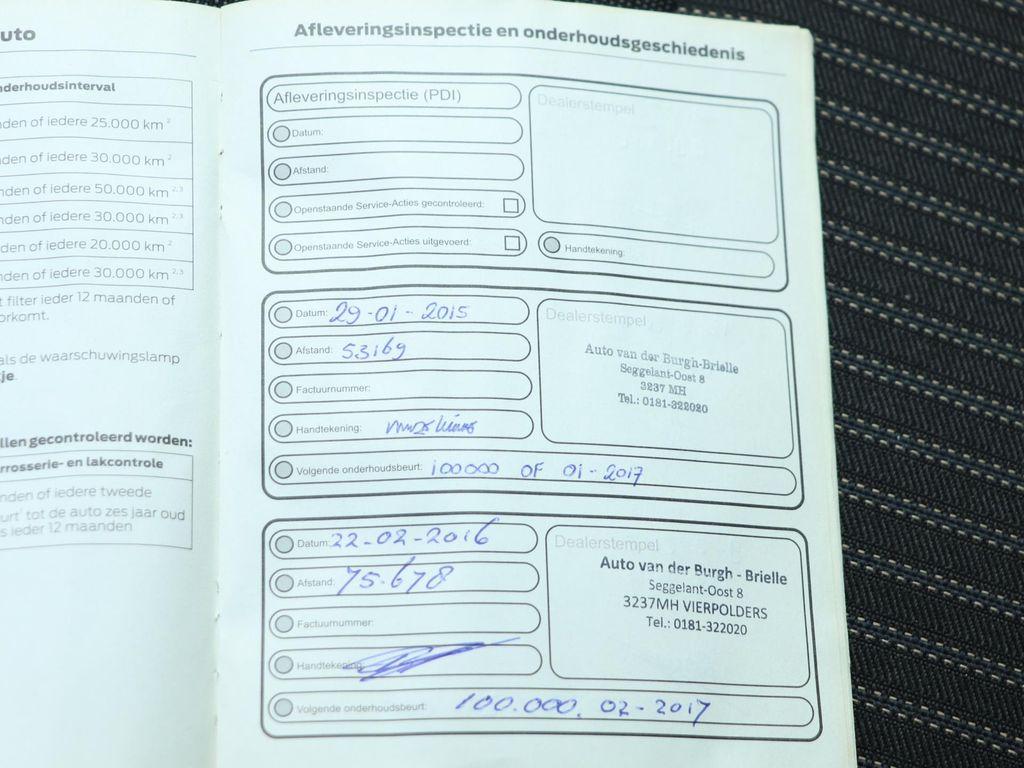 uto
nderhoudsinterval
nden of iedere 25.000 km ²
nden of iedere 30.000 km ²
nden of iedere 50.000 km ²,³
nden of iedere 30.000 km ²,³
nden of iedere 20.000 km ²
nden of iedere 30.000 km ²,³
t filter ieder 12 maanden of
orkomt.
als de waarschuwingslamp
je.
llen gecontroleerd worden:
rrosserie- en lakcontrole
nden of iedere tweede
urt' tot de auto zes jaar oud
s ieder 12 maanden
Afleveringsinspectie en onderhoudsgeschiedenis
Afleveringsinspectie (PDI)
Datum:
Afstand:
Openstaande Service-Acties gecontroleerd:
Openstaande Service-Acties uitgevoerd:
Dealerstempel
Handtekening:
Datum: 29-01-2015
Afstand: 53169
Factuurnummer:
Handtekening:
Dealerstempel
Auto van der Burgh-Brielle
Seggelant-Oost 8
3237 MH
Tel.: 0181-322020
Volgende onderhoudsbeurt: 100000 OF 01-2017
Datum: 22-02-2016
Afstand: 75.678
Factuurnummer:
Handtekening:
Dealerstempel
Auto van der Burgh - Brielle
Seggelant-Oost 8
3237MH VIERPOLDERS
Tel.: 0181-322020
Volgende onderhoudsbeurt: 100.000. 02-2017